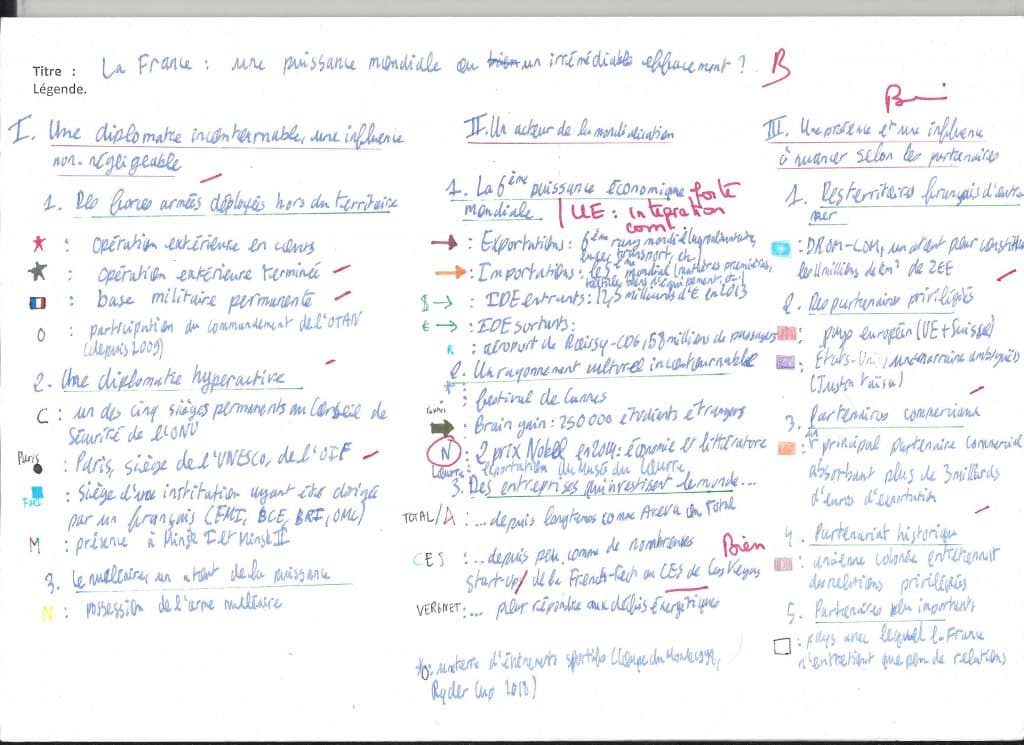 Titre :
La France : une puissance mondiale ou un irrémédiable effacement ? B
Légende.
Bien
I. Une diplomatie incontournable, une influence
non-négligeable
1. Des forces armées déployées hors du territoire
: opération extérieure en cours
: opération extérieure terminée
: base militaire permanente
O : participation au commandement de l'OTAN
(depuis 2009)
2. Une diplomatie hyperactive
C : un des cinq sièges permanents au Conseil de
Sécurité de l'ONU
Paris : Paris, siège de l'UNESCO, de l'OIF
FMI : Siège d'une institution ayant été dirigée
par un français (FMI, BCE, BRI, OMC)
M : présence à Minsk I et Minsk II
3. Le nucléaire, un atout de la puissance
N : possession de l'arme nucléaire
II. Un acteur de la mondialisation
1. La 6ème puissance économique
mondiale
forte
UE : intégration
: Exportations : 6ème rang mondial
: Importations : mondial (matières premières,
$ → : IDE entrants : 12,5 milliards d'€ en 2013
€ → : IDE sortants :
R : aéroport de Roissy-CDG, 58 millions de passagers
2. Un rayonnement culturel incontournable
: festival de Cannes
: Brain gain : 250 000 étudiants étrangers
N : 2 prix Nobel en 2014 : économie et littérature
Louvre : exportation du Musée du Louvre
3. Des entreprises qui investissent le monde...
TOTAL/A : ... depuis longtemps comme Areva ou Total
CES : ... depuis peu, comme de nombreuses
start-up de la French-Tech au CES de Las Vegas
Bien
VERGNET : ... pour répondre aux défis énergétiques
: une terre d'évènements sportifs (Coupe du Monde 1998,
Ryder Cup 2018)
III. Une présence et une influence
à nuancer selon les partenaires
1. Des territoires français d'outre
mer
: DROM-COM, un atout pour constituer
les 11 millions de km² de ZEE
2. Des partenaires privilégiés
: pays européen (UE + Suisse)
: États-Unis,
3. Partenaires commerciaux
: principal partenaire commercial
absorbant plus de 3 milliards
d'euros d'exportation
4. Partenariat historique
: ancienne colonie entretenant
des relations privilégiées
5. Partenaires peu importants
: pays avec lequel la France
n'entretient que peu de relations